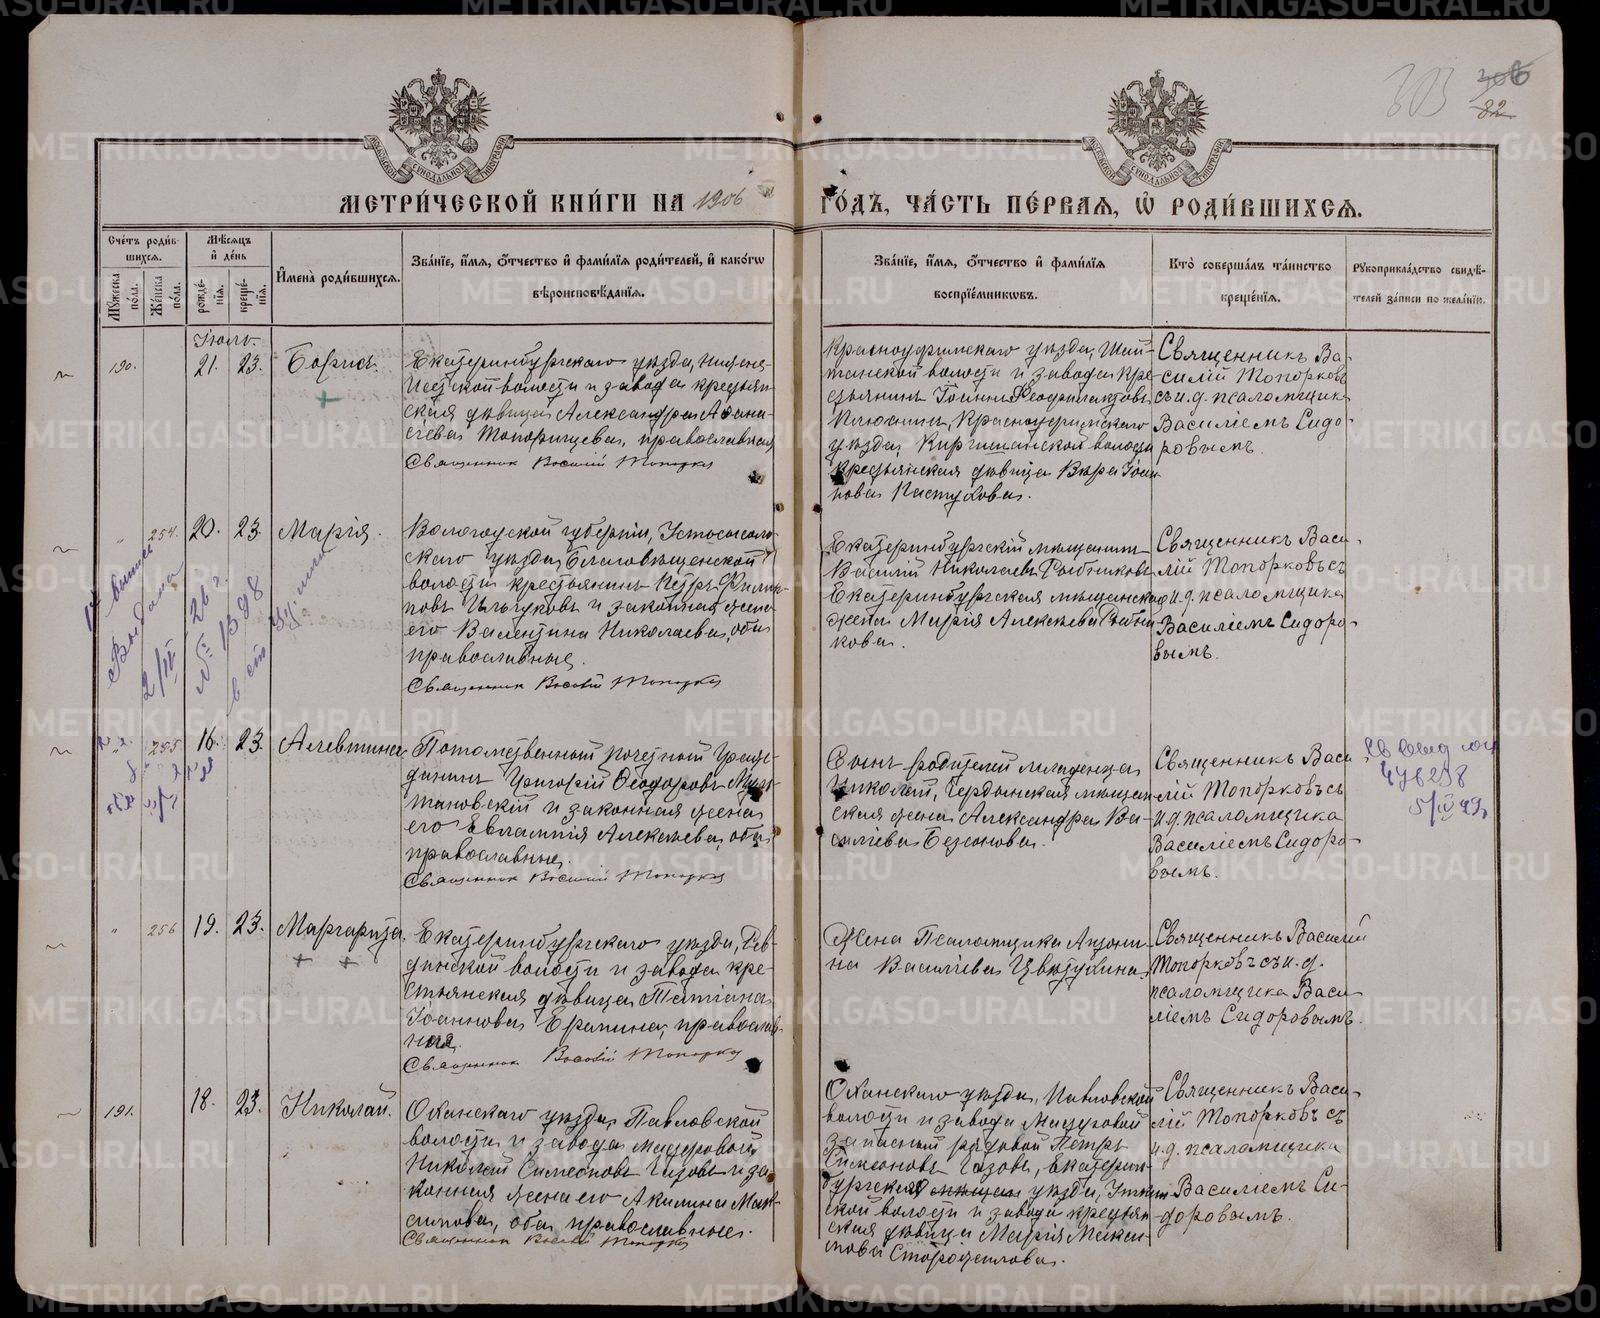 303 306
82
МЕТРИ́ЧЕСКОЙ КНИ́ГИ НА 1906 ГО́ДЪ, ЧА́СТЬ ПЕ́РВАЯ, Ѡ҆ РОДИ́ВШИХСЯ.
Сче́тъ роди́в-
шихся.
Мꙋ́жеска по́ла.
Же́нска по́ла.
Мѣ́сяцъ
и҆ де́нь
рожде́-
нїя.
креще́-
нїя.
И҆мена̀ роди́вшихся.
Зва́нїе, и҆́мя, ѻ҆́тчество и҆ фами́лїя роди́телей, и҆ како́гѡ
вѣроисповѣ́данїя.
Зва́нїе, и҆́мя, ѻ҆́тчество и҆ фами́лїя
воспрїе́мникѡвъ.
Кто̀ соверша́лъ та́инство
креще́нїя.
Рꙋкоприкла́дство свидѣ́-
телей за́писи по жела́нїю.
Іюль.
190.
21. 23.
Борисъ.
Екатеринбургскаго уѣзда, Нижне-
Исетской волости и завода крестьян-
ская дѣвица Александра Афана-
сіева Топорищева, православная
Священник Василій Топорков
Красноуфимскаго уѣзда, Шай-
танской волости и завода кре-
стьянинъ Іоаннъ Феофилактовъ
Плюснинъ, Красноуфимскаго
уѣзда, Киргишанской волости
крестьянская дѣвица Вѣра Іоан-
нова Пастухова.
Священникъ Ва-
силій Топорковъ
съ и.д. псаломщика
Василіемъ Сидо-
ровымъ.
" 254. 20. 23.
Марія.
Вологодской губерніи, Устьсысоль-
скаго уѣзда, Благовѣщенской
волости крестьянинъ Петръ Филип-
повъ и законная жена
его Валентина Николаева, оба
православные.
Священник Василій Топорков
Екатеринбургскій мѣщанинъ
Василій Николаевъ
Екатеринбургская мѣщанская
жена Марія Алексѣева
кова.
Священникъ Васи-
лій Топорковъ съ
и.д. псаломщика
Василіемъ Сидоро-
вымъ.
Выдана
2/IV 26 г.
№ 1398
" 255 16. 23.
Алевтина
Потомственный почетный граж-
данинъ Григорій Феодоровъ
тановскій и законная жена
его Евлампія Алексѣева, оба
православные.
Священник Василій Топорков
Сынъ родителей младенца
Николай, Чердынская мѣщан-
ская жена Александра Ва-
силіева Безсонова.
Священникъ Васи-
лій Топорковъ съ
и.д. псаломщика
Василіемъ Сидоро-
вымъ.
" 256 19. 23.
Маргарита.
Екатеринбургскаго уѣзда, Рев-
динской волости и завода кре-
стьянская дѣвица Татіана
Іоаннова Ерапина, православ-
ная.
Священник Василій Топорков
Жена Псаломщика Антони-
на Василіева Цвѣтухина
Священникъ Василій
Топорковъ съ и.д.
псаломщика Васи-
ліемъ Сидоровымъ.
191. 18. 23.
Николай.
Оханскаго уѣзда, Павловской
волости и завода
Николай Симеоновъ и за-
конная жена его Акилина Мак-
симова, оба православные.
Священник Василій Топорков
Оханскаго уѣзда, Павловской
волости и завода
запасный рядовой Петръ
Симеоновъ Екатерин-
бургскаго уѣзда, Уткин-
ской волости и завода крестьян-
ская дѣвица Марія Макси-
мова
Священникъ Васи-
лій Топорковъ съ
и.д. псаломщика
Василіемъ Си-
доровымъ.